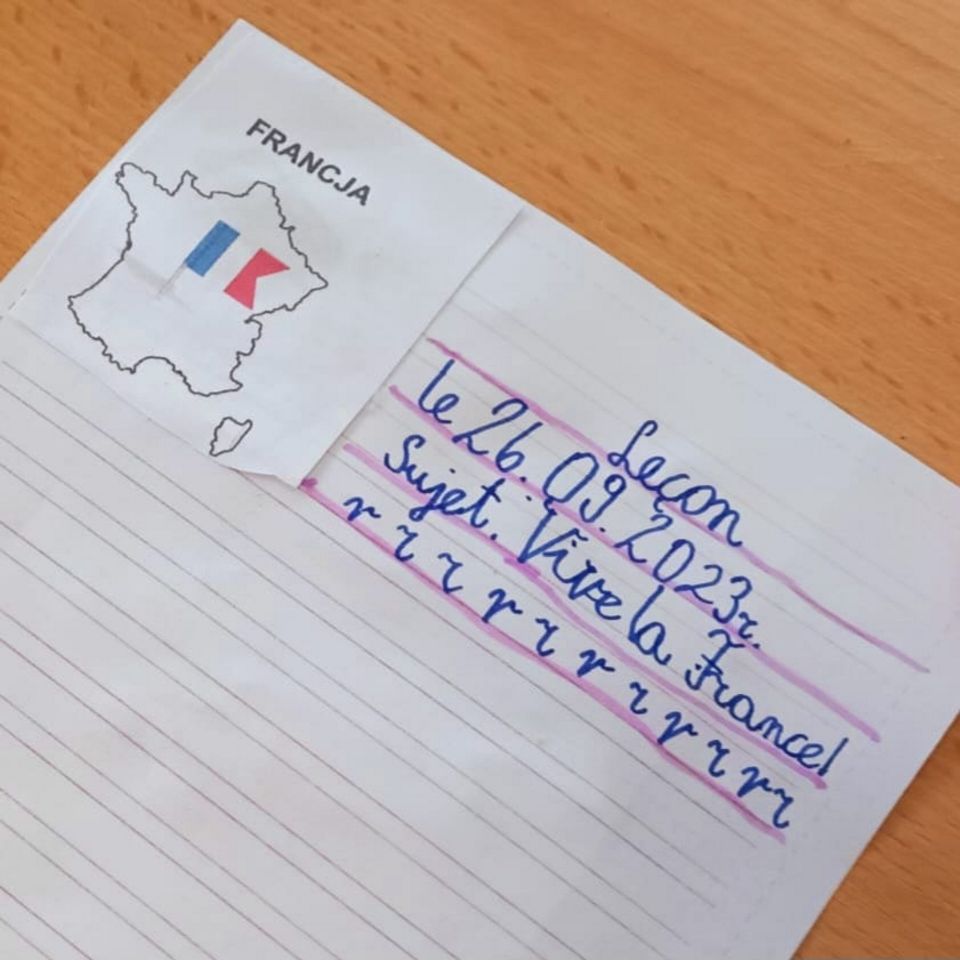 FRANCJA
Leçon
le 26.09.2023r.
Sujet. Vive la France!
r r r r r r r r r r r